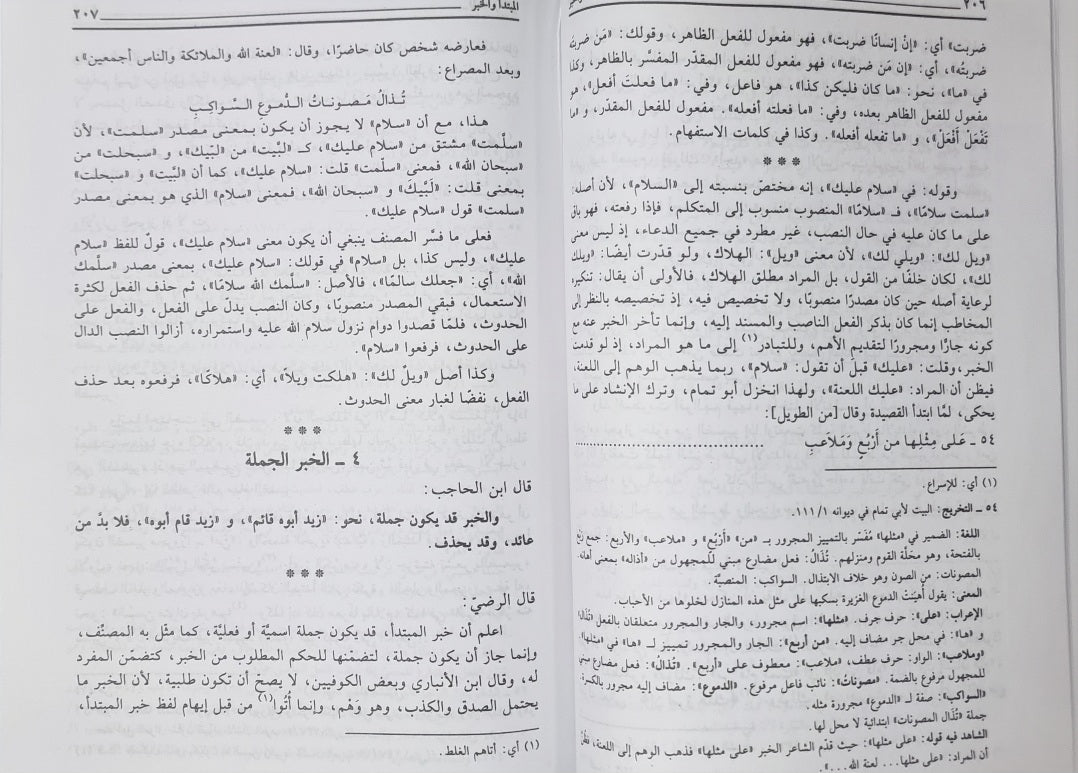 ٢٠٦
ضربت» أي: «إنْ إنسانًا ضربت»، فهو مفعول للفعل الظاهر، وقولك: «مَن ضربتَ
ضربتُه»، أي: «إن مَن ضربته»، فهو مفعول للفعل المقدّر المفسَّر بالظاهر، وكذا
في «ما»، نحو: «ما كان فليكن كذا»، هو فاعل، وفي: «ما فعلتَ أفعل»، هو
مفعول للفعل الظاهر بعده، وفي: «ما فعلته أفعله». مفعول للفعل المقدّر، و «ما
تَفْعَلْ أَفْعَلْ»، و «ما تفعله أفعله». وكذا في كلمات الاستفهام.
***
وقوله: في «سلام عليك»، إنه مختصّ بنسبته إلى «السلام»، لأن أصله:
«سلمت سلامًا»، فـ «سلامًا» المنصوب منسوب إلى المتكلم، فإذا رفعته، فهو باقٍ
على ما كان عليه في حال النصب، غير مطرد في جميع الدعاء، إذ ليس معنى
«ويل لك»: «ويلي لك»، لأن معنى «ويل»: الهلاك، ولو قدرت أيضًا: «ويلك
لك»، لكان خلفًا من القول، بل المراد مطلق الهلاك، فالأولى أن يقال: تنكيره
لرعاية أصله حين كان مصدرًا منصوبًا، ولا تخصيص فيه، إذ تخصيصه بالنظر إلى
المخاطب إنما كان بذكر الفعل الناصب والمسند إليه، وإنما تأخر الخبر عنه مع
كونه جارًا ومجرورًا لتقديم الأهم، وللتبادر(١) إلى ما هو المراد، إذ لو قدمت
الخبر، وقلت: «عليك» قبل أن تقول: «سلام»، ربما يذهب الوهم إلى اللعنة،
فيظن أن المراد: «عليك اللعنة»، ولهذا انخزل أبو تمام، وترك الإنشاد على ما
يحكى، لمّا ابتدأ القصيدة وقال [من الطويل]:
٥٤ ـ عَلى مِثْلِها من أَرْبُعٍ وَمَلاَعبِ ..........................................
(١) أي: للإسراع.
٥٤ ـ التخريج: البيت لأبي تمام في ديوانه ١١١/١.
اللغة: الضمير في «مثلها» مُفَسَّر بالتمييز المجرور بـ «من» «أَرْبُع» و «ملاعب» والأربع: جمع رَبْع
بالفتحة، وهو محَلّة القوم ومنزلهم. تُذَالُ: فعل مضارع مبني للمجهول من «أذاله» بمعنى أهانه.
المصونات: من الصون وهو خلاف الابتذال. السواكب: المنصبّة.
المعنى: يقول أُهينَتْ الدموع الغزيرة بسكبها على مثل هذه المنازل لخلوها من الأحباب.
الإعراب: «على»: حرف جرف. «مثلها»: اسم مجرور، والجار والمجرور متعلقان بالفعل «تُذالُ»
و «ها»: في محل جر مضاف إليه. «من أربع»: الجار والمجرور تمييز لـ «ها» في «مثلها».
«وملاعب»: الواو: حرف عطف، «ملاعب»: معطوف على «أربع». «تُذالُ»: فعل مضارع مبني
للمجهول مرفوع بالضمة. «مصوناتُ»: نائب فاعل مرفوع. «الدموع»: مضاف إليه مجرور بالكسرة.
«السواكب»: صفة لـ «الدموع» مجرورة مثله.
جملة «تُذَال المصونات» ابتدائية لا محل لها.
الشاهد فيه قوله: «على مثلها»: حيث قدّم الشاعر الخبر «على مثلها» فذهب الوهم إلى اللعنة،
أن المراد: «على مثلها... لعنة الله...».
المبتدأ والخبر ٢٠٧
فعارضه شخص كان حاضرًا، وقال: «لعنة الله والملائكة والناس أجمعين»،
وبعد المصراع:
تُـذالُ مَـصـونـاتُ الـدُّموعِ السَّـواكـبِ
هـذا، مع أن «سلام» لا يجوز أن يكون بمعنى مصدر «سلمت»، لأن
«سلّمت» مشتق من «سلام عليك»، كـ «لبَّيت» من «لبَيك»، و «سبحلت» من
«سبحان الله»، فمعنى «سلّمت» قلت: «سلام عليك»، كما أن «لبَّيت» و «سبحلت»
بمعنى قلت: «لَبَّيكَ» و «سبحان الله»، فمعنى «سلام» الذي هو بمعنى مصدر
«سلمت» قول «سلام عليك».
فعلى ما فسَّر المصنف ينبغي أن يكون معنى «سلام عليك»، قولٌ للفظ «سلام
عليك»، وليس كذا، بل «سلام» في قولك: «سلام عليك»، بمعنى مصدر «سلّمك
الله»، أي: «جعلك سالمًا»، فالأصل: «سلّمك الله سلامًا»، ثم حذف الفعل لكثرة
الاستعمال، فبقي المصدر منصوبًا، وكان النصب يدلّ على الفعل، والفعل على
الحدوث، فلمّا قصدوا دوام نزول سلام الله عليه واستمراره، أزالوا النصب الدال
على الحدوث، فرفعوا «سلام».
وكذا أصل «ويلٌ لك»: «هلكت ويلاً»، أي: «هلاكًا»، فرفعوه بعد حذف
الفعل، نفضًا لغبار معنى الحدوث.
***
٤ ـ الخبر الجملة
قال ابن الحاجب:
والخبر قد يكون جملة، نحو: «زيد أبوه قائم»، و «زيد قام أبوه»، فلا بدَّ من
عائد، وقد يحذف.
***
قال الرضيّ:
اعلم أن خبر المبتدأ، قد يكون جملة اسميّة أو فعليّة، كما مثّل به المصنّف،
وإنما جاز أن يكون جملة، لتضمّنها للحكم المطلوب من الخبر، كتضمّن المفرد
له، وقال ابن الأنباري وبعض الكوفيين، لا يصحّ أن تكون طلبية، لأن الخبر ما
يحتمل الصدق والكذب، وهو وَهْم، وإنما أُتُوا(١) من قبل إيهام لفظ خبر المبتدأ،
(١) أي: أتاهم الغلط.